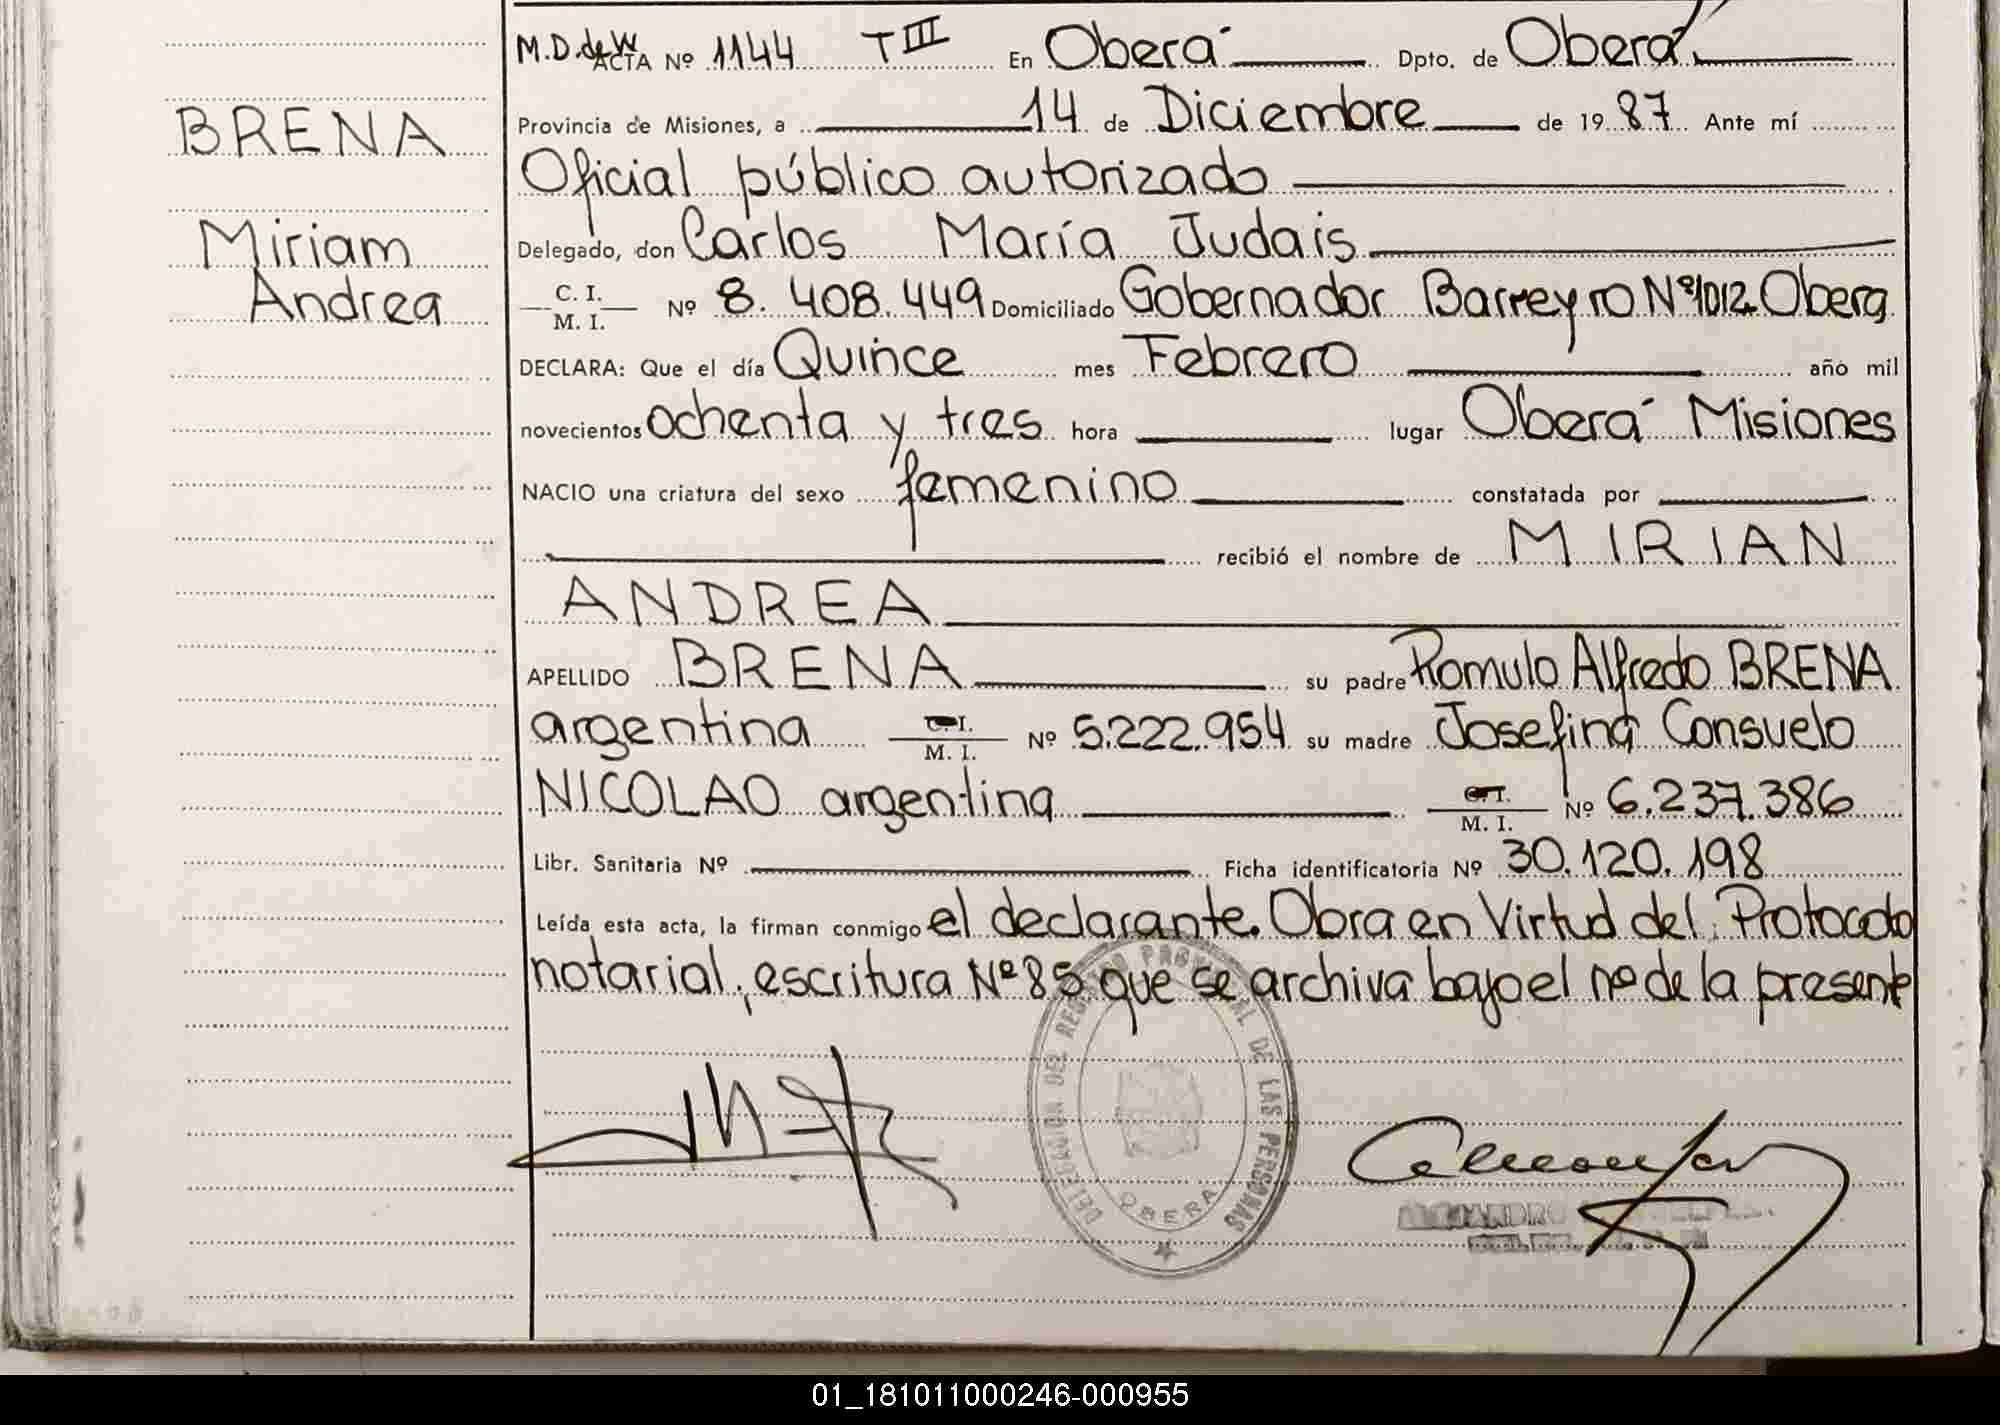 M.D. de W
ACTA Nº 1144 T III En Oberá Dpto. de Oberá
BRENA
Provincia de Misiones, a 14 de Diciembre de 1987 Ante mí
Oficial público autorizado
Miriam
Delegado, don Carlos María Judais
Andrea
C. I.
M. I.
Nº 8.408.449 Domiciliado Gobernador Barreyro Nº 1012 Obera
DECLARA: Que el día Quince mes Febrero año mil
novecientos ochenta y tres hora lugar Oberá Misiones
NACIO una criatura del sexo femenino constatada por
recibió el nombre de MIRIAN
ANDREA
APELLIDO BRENA su padre Romulo Alfredo BRENA
argentina C.I. M. I. Nº 5.222.954 su madre Josefina Consuelo
NICOLAO argentina C.I. M. I. Nº 6.237.386
Libr. Sanitaria Nº Ficha identificatoria Nº 30.120.198
Leída esta acta, la firman conmigo el declarante. Obra en Virtud del Protocolo
notarial, escritura Nº 85 que se archiva bajo el nº de la presente
DELEGACION DEL REGISTRO PROVINCIAL DE LAS PERSONAS
OBERA
ALEJANDRO
01_181011000246-000955